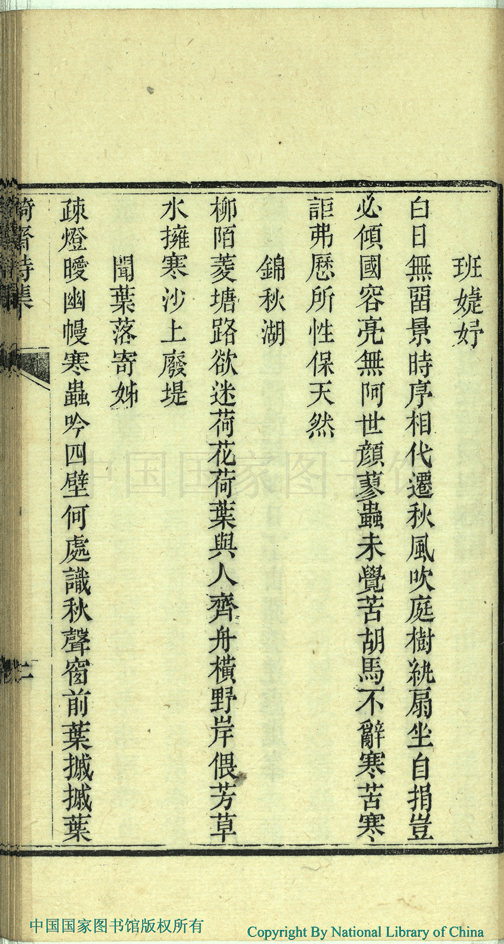 班婕妤
白日無畱景時序相代遷秋風吹庭樹紈扇坐自捐豈
必傾國容亮無阿世顔蓼蟲未覺苦胡馬不辭寒苦寒
詎弗歷所性保天然
錦秋湖
柳陌菱塘路欲迷荷花荷葉與人齊舟橫野岸偎芳草
水擁寒沙上廢堤
聞葉落寄姊
疎燈曖幽幔寒蟲吟四壁何處識秋聲窗前葉摵摵葉
齋詩集
二
中国国家图书馆
中国国家图书馆版权所有
Copyright By National Library of China